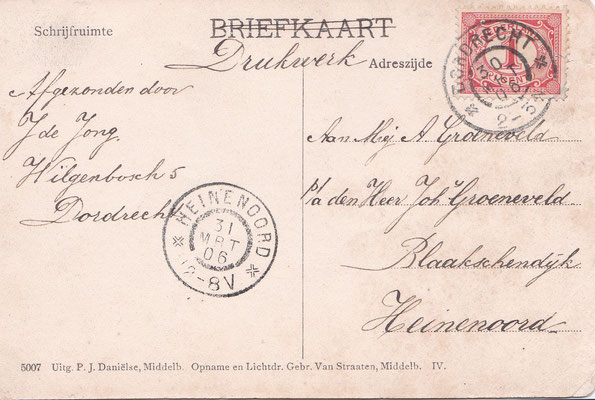 Schrijfruimte
BRIEFKAART
Drukwerk
Adreszijde
DORDRECHT
Afgezonden door
J de Jong.
Wilgenbosch 5
Dordrecht
Aan Mej A Groeneveld
p/a den Heer Joh's Groeneveld
Blaakschendijk
Heinenoord
HEINENOORD
31
MRT
06
12-8V
5007 Uitg. P. J. Daniëlse, Middelb. Opname en Lichtdr. Gebr. Van Straaten, Middelb. IV.